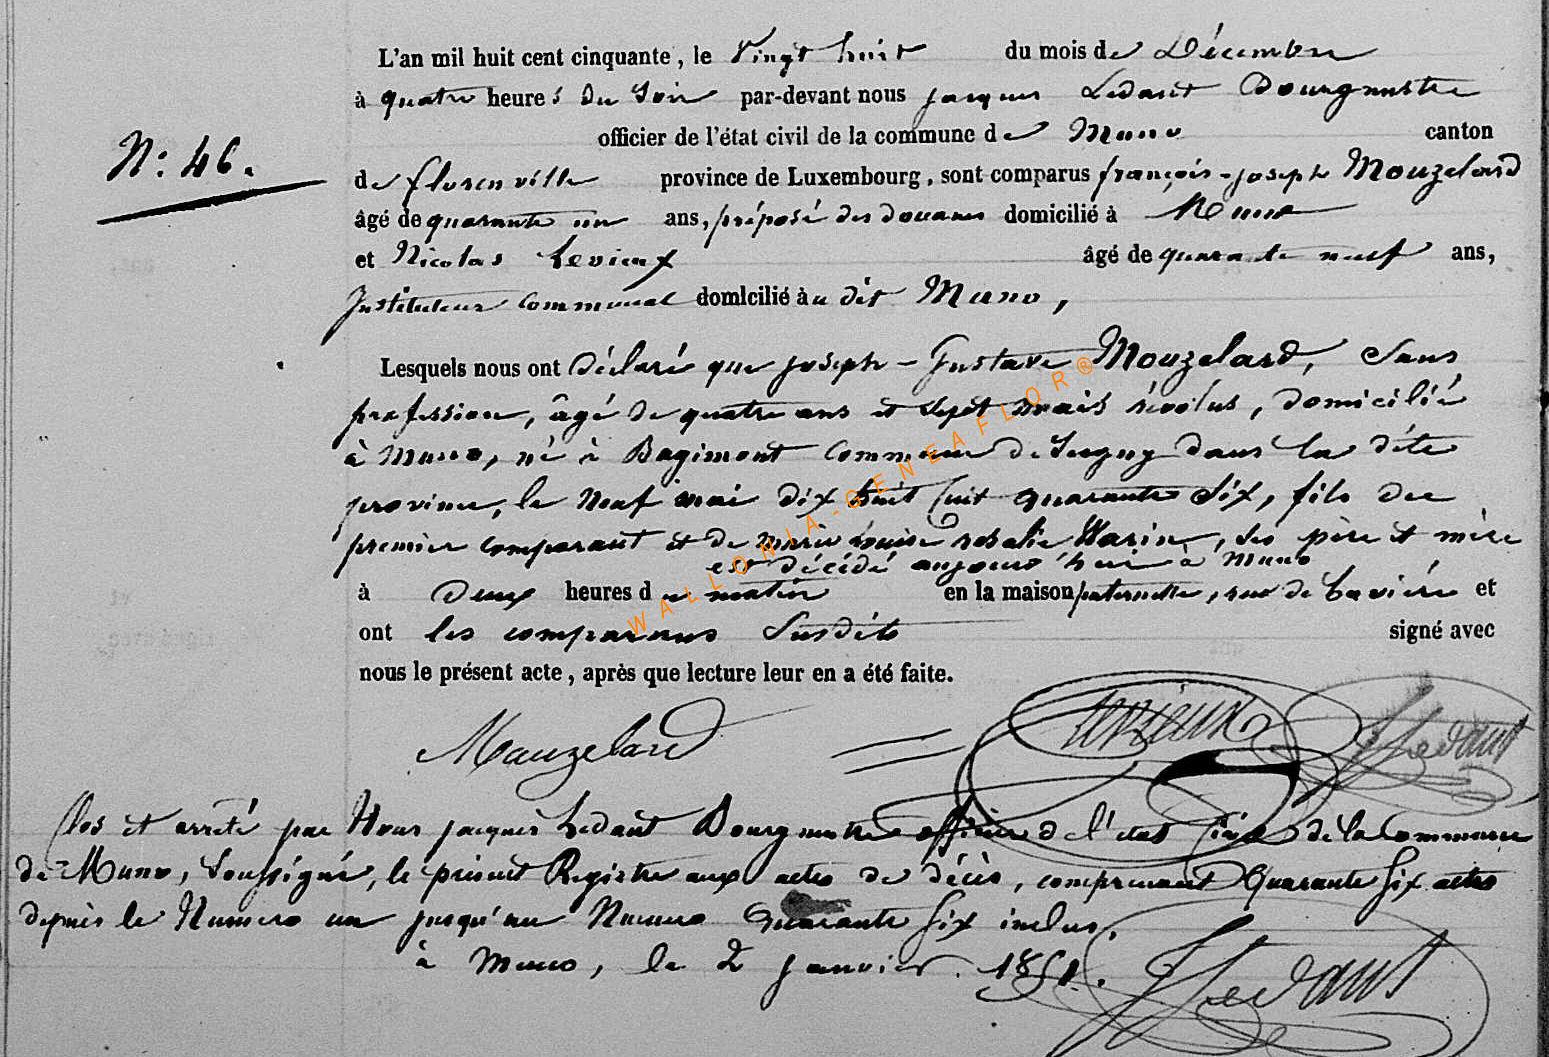 L'an mil huit cent cinquante, le Vingt huit du mois de Décembre
à quatre heures du Soir par-devant nous jacques Ledant Bourgmestre
officier de l'état civil de la commune de Muno canton
N: 46.
de florenville province de Luxembourg, sont comparus françois-joseph Mouzelard
âgé de quarante un ans, préposé des douanes domicilié à Muno
et Nicolas Levieux âgé de quarante neuf ans,
Instituteur Communal domicilié à u dit Muno,
Lesquels nous ont Déclaré que joseph-Gustave Mouzelard, Sans
profession, âgé de quatre ans et sept mois révolus, domicilié
à Muno, né à Bagimont Commune de Sugny dans la dite
province, le Neuf mai dix huit Cent quarante Six, fils du
premier comparant et de Marie Louise rosalie Warin, ses père et mère
est décédé aujourd'hui à Muno
à Deux heures du matin en la maison paternelle, rue de baviére et
ont les comparans Susdits signé avec
nous le présent acte, après que lecture leur en a été faite.
Mouzelard Levieux JLedant
Clos et arreté par Nous jacques Ledant Bourgmestre officier de l'état Civil de la Commune
de Muno, Soussigné, le présent Registre aux actes de décès, comprenant Quarante Six actes
depuis le Numero un jusqu'au Numero Quarante Six inclus.
à Muno, le 2 janvier 1851.
JLedant
WALLONIA-GENEAFLOR®